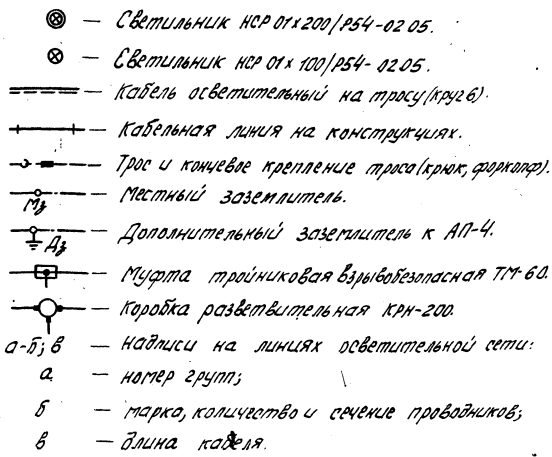 — Светильник НСР 01х200/Р54-02 05.
— Светильник НСР 01х 100/Р54-0205.
— Кабель осветительный на тросу (круг 6).
— Кабельная линия на конструкциях.
— Трос и концевое крепление троса (крюк, форкопф).
Мз — Местный заземлитель.
Дз — Дополнительный заземлитель к АП-4.
— Муфта тройниковая взрывобезопасная ТМ-60.
— Коробка разветвительная КРН-200.
а-б; в — Надписи на линиях осветительной сети:
а — номер групп;
б — марка, количество и сечение проводников;
в — длина кабеля.